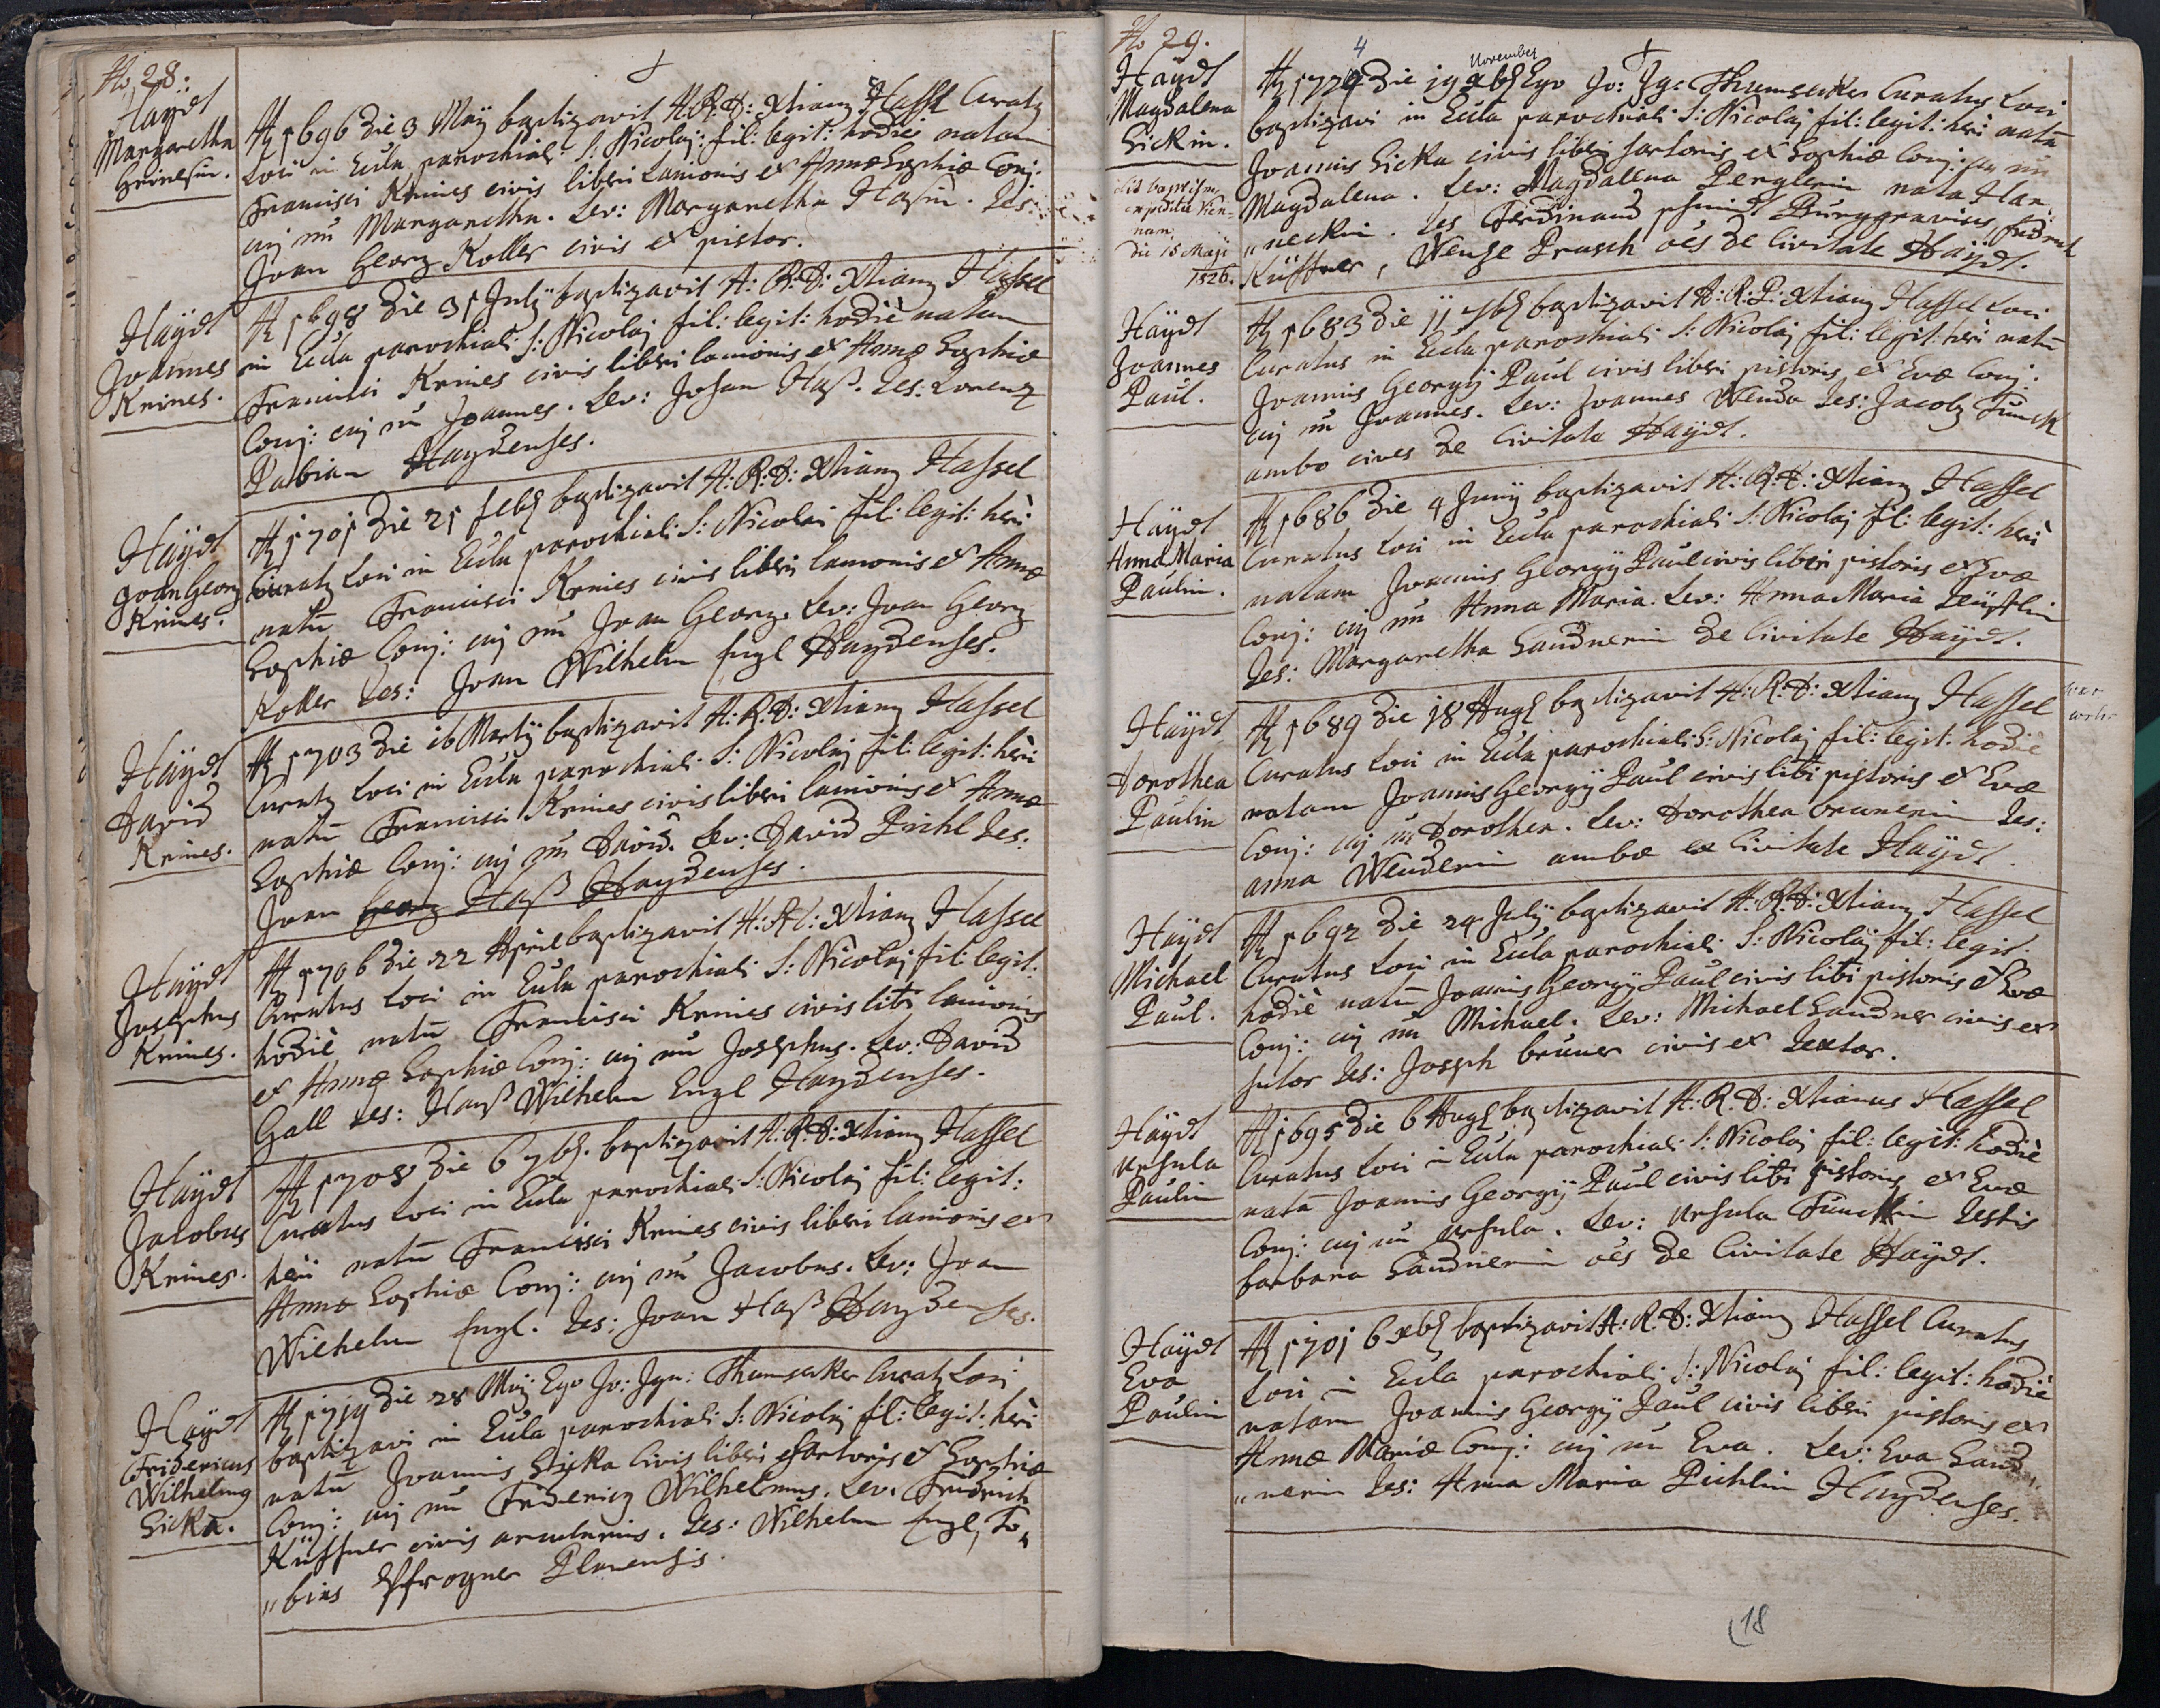 No 28:
Haÿdt
Margaretha
Kninesin.
Aõ 1696 die 3 Maÿ baptizavit A: R: D: Xtianq Hassl Curatq
Loci in Eccla parochiali S: Nicolaj: fil: legit: hodie natam
Francisci Knines civis liberi Lanionis et Annæ Sophiæ Conj:
cuj nũ Margaretha. Lev: Margaretha Hasin. Tes:
Joan Georg Koller civis et pistor.
Haÿdt
Joannes
Knines.
Aõ 1698 die 31 Julÿ baptizavit A: R: D: Xtianq Hassel
in Eccla parochiali S: Nicolaj fil: legit: hodiè natum
Francisci Knines civis liberi lanionis et Annæ Sophiæ
Conj: cuj nũ Joannes. Lev: Johan Haß. Tes: Lorenz
Pabian Haydenses.
Haÿdt
Joan Georg
Knines.
Aõ 1701 die 21 febr baptizavit A: R: D: Xtianq Hassel
Curatq Loci in Eccla parochiali S: Nicolai fil: legit: heri
natũ Francisci Knines civis liberi lanionis et Annæ
Sophiæ Conj: cuj nũ Joan Georg. Lev: Joan Georg
Koller Tes: Joan Wilhelm Engl Haydenses.
Haÿdt
David
Knines.
Aõ 1703 die 16 Martÿ baptizavit A: R: D: Xtianq Hassel
Curatq Loci in Eccla parochiali S: Nicolaj fil: legit: heri
natũ Francisci Knines civis liberi lanionis et Annæ
Sophiæ Conj: cuj nũ David. Lev: David Pichl Tes:
Joan Georg Haß Haydenses.
Haÿdt
Josephus
Knines.
Aõ 1706 die 22 Aprill baptizavit A: R: D: Xtianq Hassel
Curatus Loci in Eccla parochiali S: Nicolaj fil: legit:
hodiè natũ Francisci Knines civis libi lanionis
et Annæ Sophiæ Conj: cuj nũ Josephus. Lev: David
Gall Tes: Hanß Wilhelm Engl Haydenses.
Haÿdt
Jacobus
Knines.
Aõ 1708 die 6 7br. baptizavit A: R: D: Xtianq Hassel
Curatus Loci in Eccla parochiali S: Nicolaj fil: legit:
heri natũ Francisci Knines civis liberi lanionis et
Annæ Sophiæ Conj: cuj nũ Jacobus. Lev: Joan
Wilhelm Engl. Tes: Joan Haß Haydenses.
Haÿdt
Fridericus
Wilhelmq
Sicka.
Aõ 1719 die 28 Maÿ Ego Jo: Ign: Thumsecker Curatq Loci
baptizavi in Eccla parochiali S: Nicolaj fil: legit: heri
natũ Joannis Sicka Civis liberi Sartoris et Sophiæ
Conj: cuj nũ Fridericq Wilhelmus. Lev: Fridrich
Küffner civis arcularius. Tes: Wilhelm Engl, To„
„bias Planensis.
No 29.
Haÿdt
Magdalena
Sickin.
Lit baptism
expedita Vien„
nam
die 15 Maji
1826.
4
November
Aõ 1724 die 19 xbr Ego Jo: Ig: Thumsecker Curatus Loci
baptizavi in Eccla parochiali S: Nicolaj fil: legit: heri natã
Joannis Sicka civis liberi sartoris et Sophiæ Conj: cuj nũ
Magdalena. Lev: Magdalena Perglerin nata Han„
„neckin. Tes Ferdinand Burggravius, fridrich
Küffner, Wense Prasch oẽs de Civitate Haÿdt.
Haÿdt
Joannes
Paul.
Aõ 1683 die 11 7br baptizavit A: R: D: Xtianq Hassel Loci
Curatus in Eccla parochiali S: Nicolaj fil: legit: heri natũ
Joannis Georgÿ Paul civis liberi pistoris et Evæ Conj:
cuj nũ Joannes. Lev: Joannes Wenda Tes: Jacobq Funck
ambo cives de Civitate Haÿdt.
Haÿdt
Anna Maria
Paulin.
Aõ 1686 die 4 Junÿ baptizavit A: R: D: Xtianq Hassel
Curatus Loci in Eccla parochiali S: Nicolaj fil: legit: heri
natam Joannis Georgÿ Paul civis liberi pistoris et Evæ
Conj: cuj nũ Anna Maria. Lev: Anna Maria
Tes: Margaretha Sandnerin de Civitate Haÿdt.
Haÿdt
Dorothea
Paulin
Aõ 1689 die 18 Augs baptizavit A: R: D: Xtianq Hassel
Curatus Loci in Eccla parochiali S: Nicolaj fil: legit: hodie
natam Joannis Georgÿ Paul civis libi pistoris et Evæ
Conj: cuj nũ Dorothea. Lev: Dorothea brunerin Tes:
anna Wenderin ambæ ex Civitate Haÿdt.
Haÿdt
Michael
Paul.
Aõ 1692 die 24 Julÿ baptizavit A: R: D: Xtianq Hassel
Curatus Loci in Eccla parochiali S: Nicolaj fil: legit:
hodiè natũ Joannis Georgÿ Paul civis libi pistoris et Evæ
Conj: cuj nũ Michael. Lev: Michael Sandner civis et
sutor Tes: Joseph bruner civis et Textor.
Haÿdt
Ursula
Paulin
Aõ 1695 die 6 Augs baptizavit A: R: D: Xtianus Hassel
Curatus Loci in Eccla parochiali S: Nicolaj fil: legit: hodiè
natã Joannis Georgÿ Paul civis libi pistoris et Evæ
Conj: cuj nũ Ursula. Lev: Ursula Funckin Testis
barbara Sandnerin oẽs de Civitate Haÿdt.
Haÿdt
Eva
Paulin
Aõ 1701 6 xbr baptizavit A: R: D: Xtianq Hassel Curatus
Loci in Eccla parochiali S: Nicolaj fil: legit: hodiè
natam Joannis Georgÿ Paul civis liberi pistoris et
Annæ Mariæ Conj: cuj nũ Eva. Lev: Eva Sand„
„nerin Tes: Anna Maria Pichlin Haydenses.
18